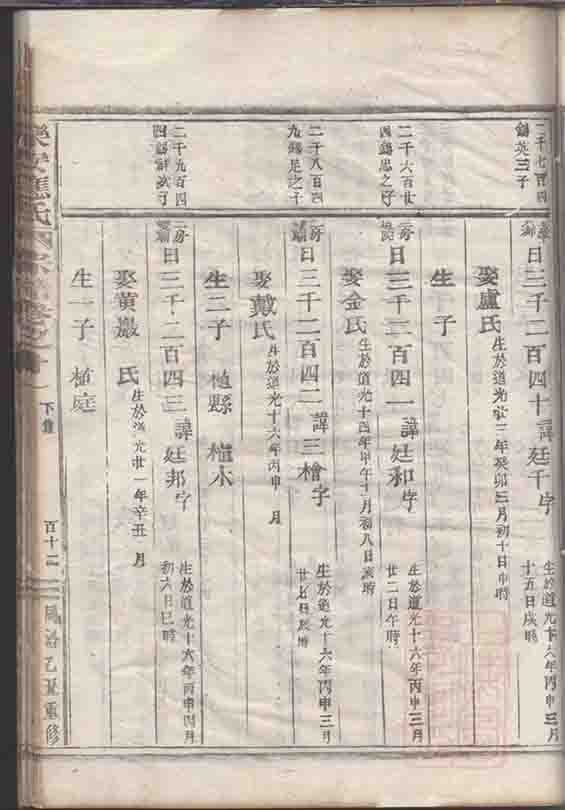 二千七百四
錫英三子
日三千二百四十諱廷千字
生於道光十六年丙申三月
十五日戌時
娶盧氏
生於道光廿三年癸卯三月初十日申時
生 子
二千六百廿
四錫思之子
二房
日三千二百四一諱廷和字
生於道光十六年丙申三月
廿二日午時
娶金氏
生於道光十四年甲午十月初八日亥時
二千八百四
九錫是之子
二房
日三千二百四二諱三檜字
生於道光十六年丙申三月
娶戴氏
生於道光十六年丙申 月
生二子 植縣 植木
二千九百四
二房
日三千二百四三諱廷邦字
生於道光十六年丙申四月
初六日巳時
娶黃巖 氏
生於道光廿一年辛丑 月
生一子 植庭
樂安蔣氏宗譜卷之十
下集
百十二
乙丑重修